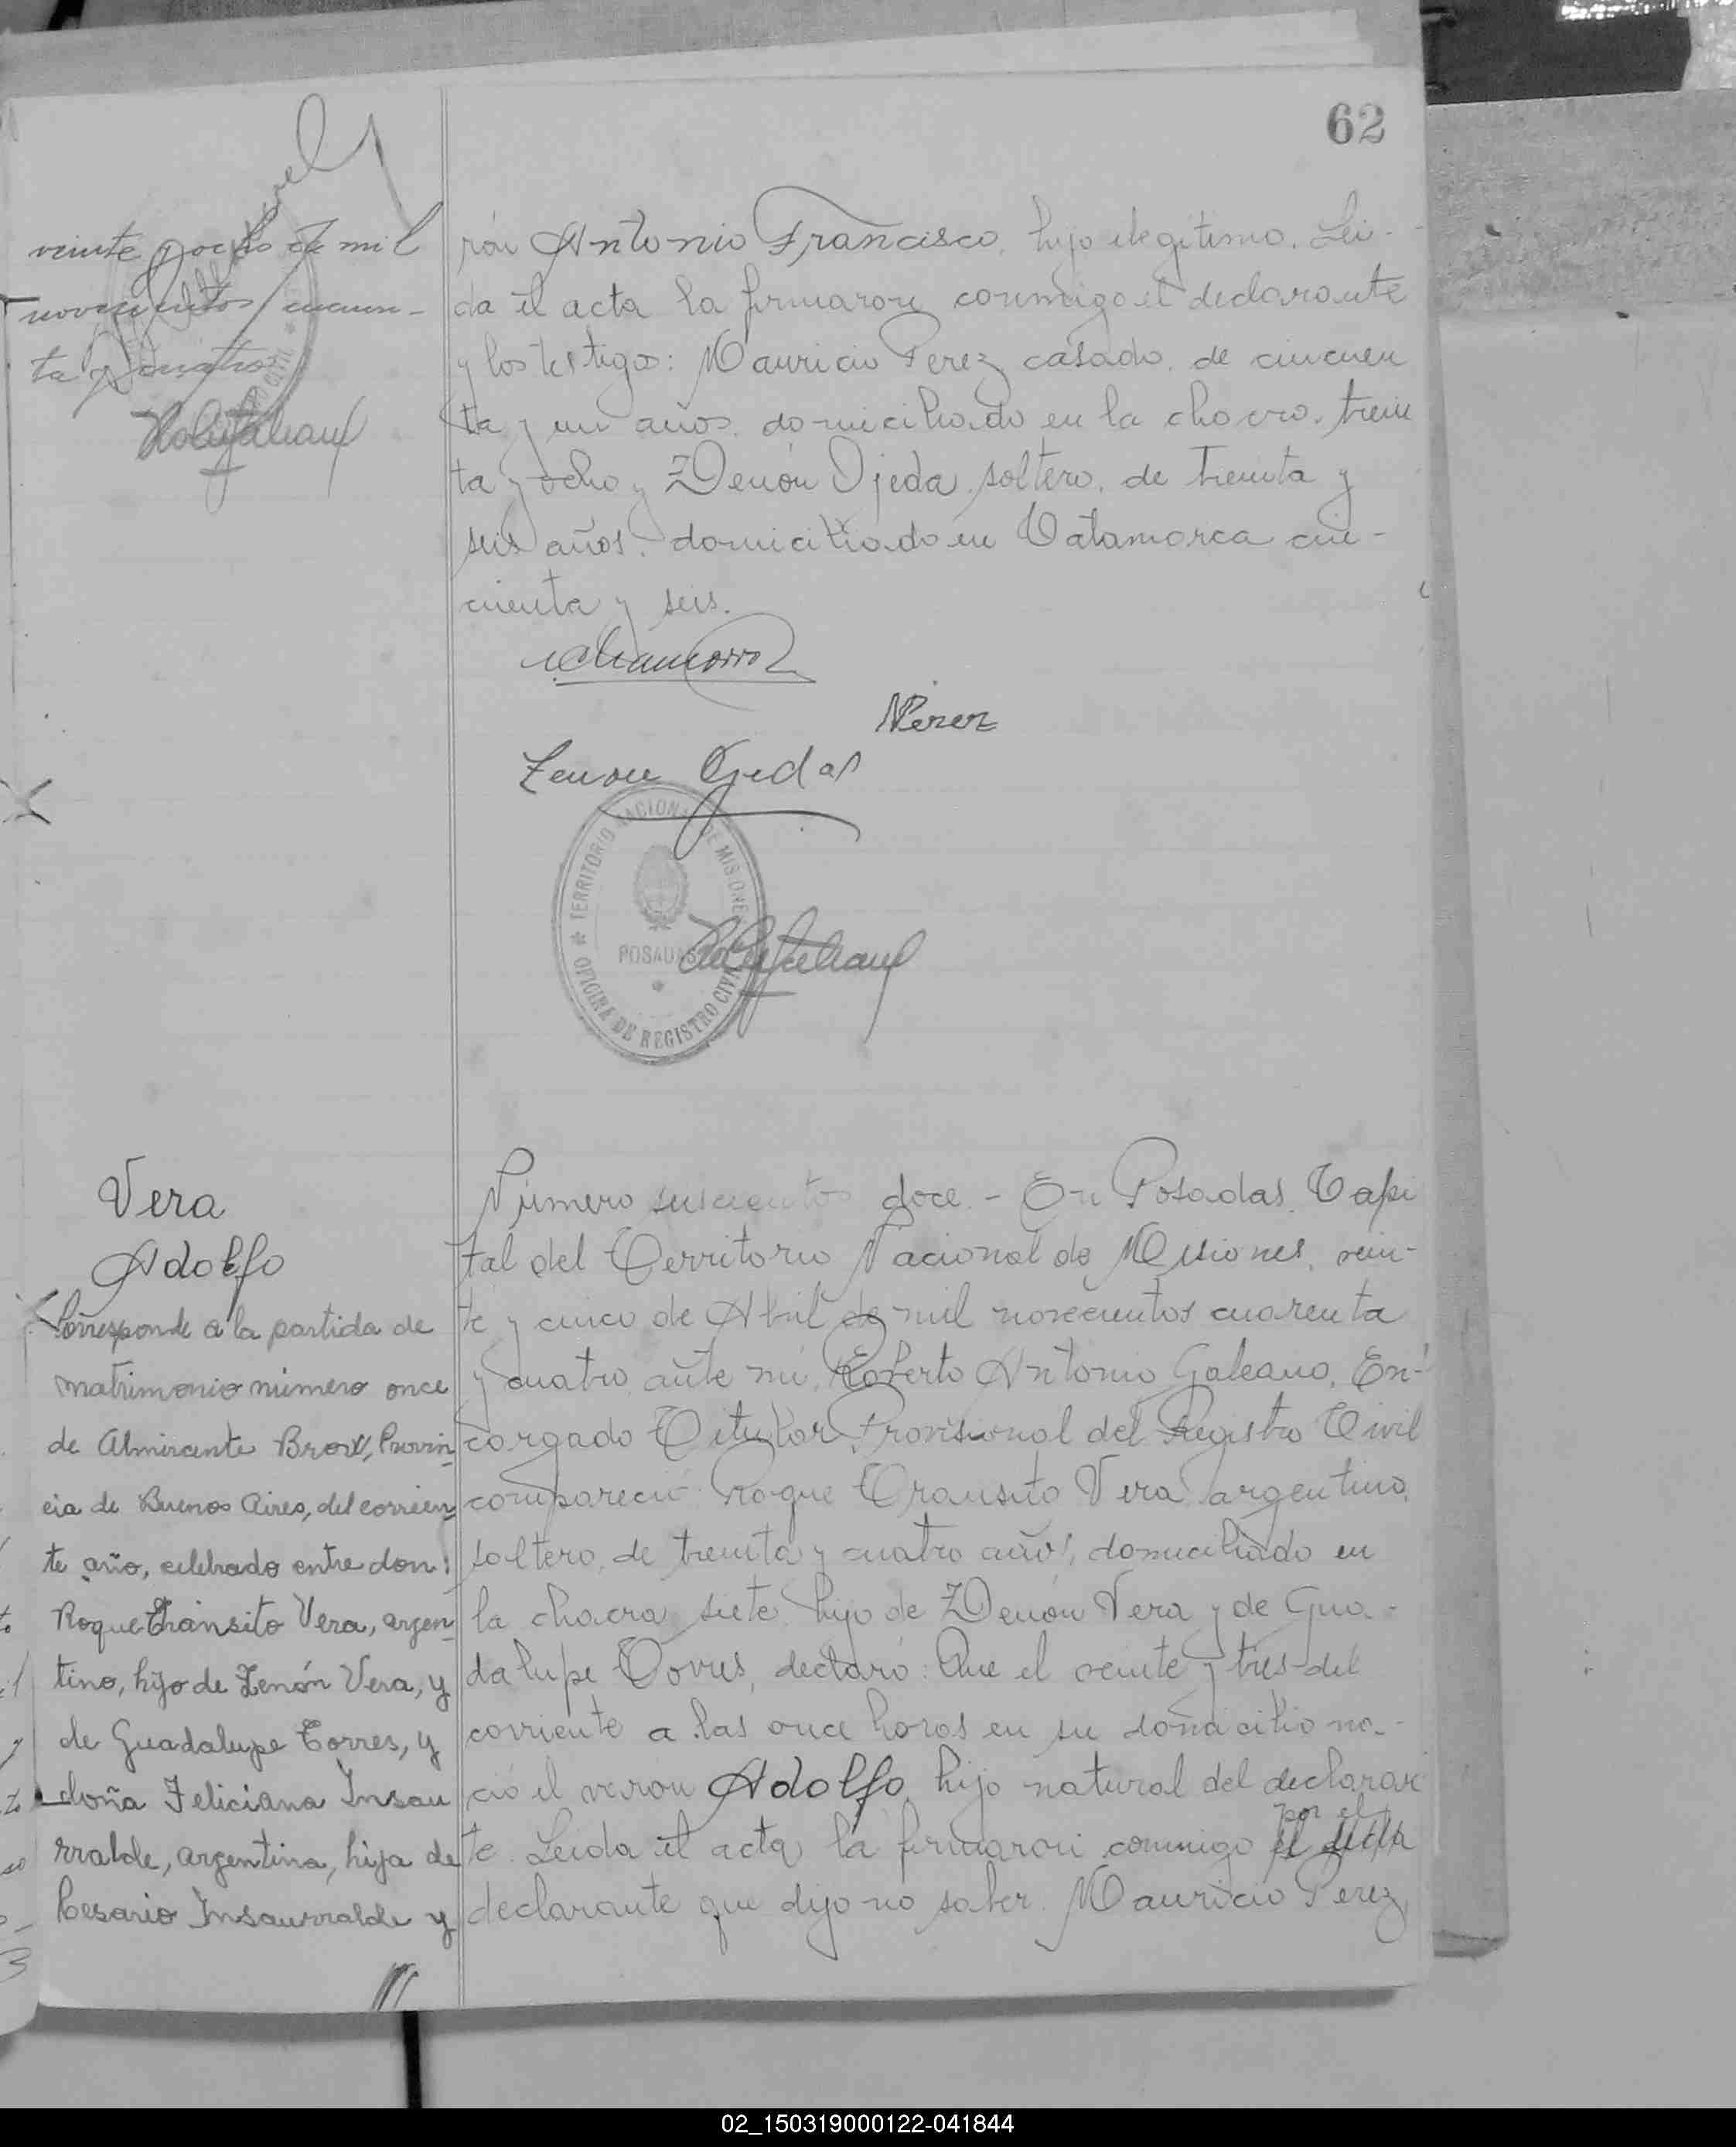 62
veinte y ocho de mil
novecientos cincuen-
ta y cuatro
rón Antonio Francisco, hijo ilegítimo. Lei-
da el acta la firmaron conmigo el declarante
y los testigos: Mauricio Perez casado, de cincuen
ta y un años, domiciliado en la chacra trein
ta y ocho y Zenón Ojeda, soltero, de treinta y
seis años, domiciliado en Catamarca cin-
cuenta y seis.
Chamorro
Perez
Zenon Ojeda
TERRITORIO NACIONAL DE MISIONES
POSADAS
OFICINA DE REGISTRO CIVIL
Vera
Adolfo
Corresponde a la partida de
matrimonio número once
de Almirante Brow, Provin
cia de Buenos Aires, del corrien
te año, celebrado entre don:
Roque Tránsito Vera, argen
tino, hijo de Zenón Vera, y
de Guadalupe Torres, y
doña Feliciana Insau
rralde, argentina, hija de
Cesario Insaurralde y
Número seiscientos doce. - En Posadas, Capi
tal del Territorio Nacional de Misiones, vein-
te y cinco de Abril de mil novecientos cuarenta
y cuatro, ante mí, Roberto Antonio Galeano, En-
cargado Titular Provisional del Registro Civil
compareció Roque Transito Vera argentino,
soltero, de treinta y cuatro años, domiciliado en
la chacra siete hijo de Zenón Vera y de Gua-
dalupe Torres, declaró: Que el veinte y tres del
corriente a las once horas en su domicilio na-
ció el varon Adolfo, hijo natural del declaran
te. Leida el acta la firmaron conmigo por el
declarante que dijo no saber. Mauricio Perez,
02_150319000122-041844